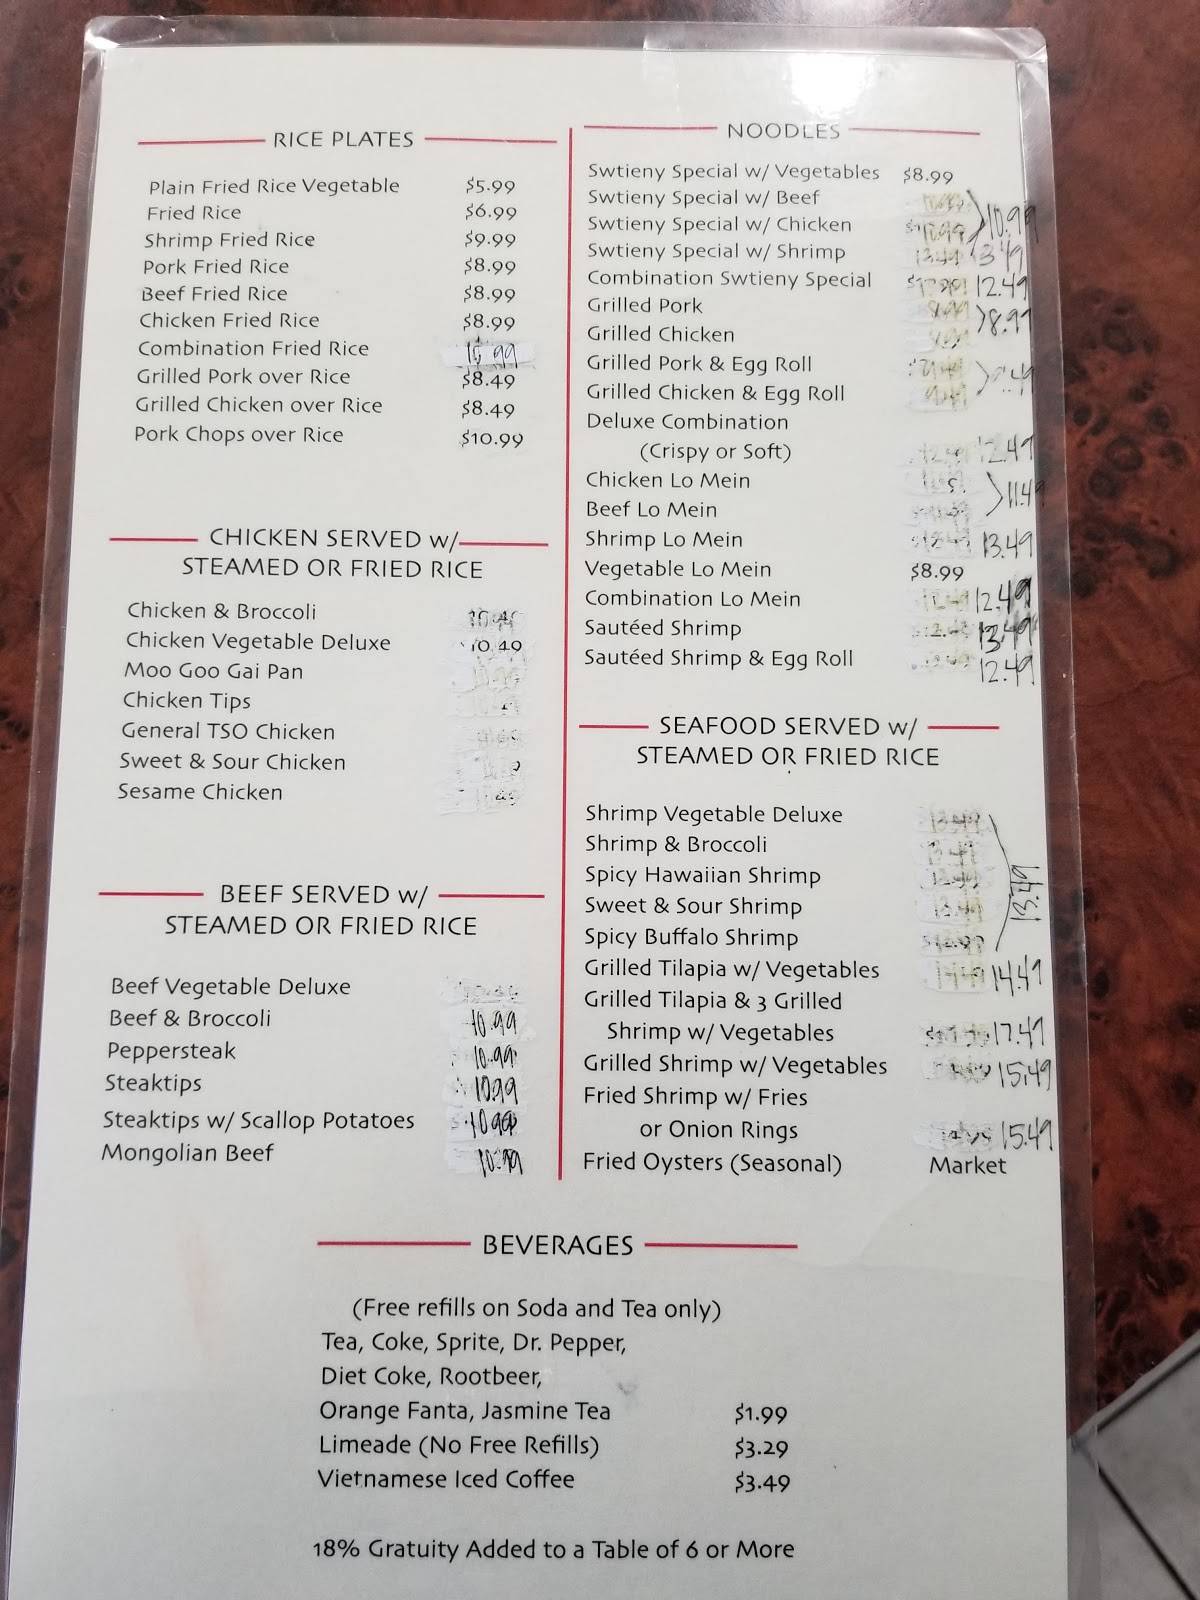 RICE PLATES
Plain Fried Rice Vegetable $5.99
Fried Rice $6.99
Shrimp Fried Rice $9.99
Pork Fried Rice $8.99
Beef Fried Rice $8.99
Chicken Fried Rice $8.99
Combination Fried Rice
Grilled Pork over Rice $8.49
Grilled Chicken over Rice $8.49
Pork Chops over Rice $10.99
CHICKEN SERVED w/
STEAMED OR FRIED RICE
Chicken & Broccoli
Chicken Vegetable Deluxe 10.49
Moo Goo Gai Pan
Chicken Tips
General TSO Chicken
Sweet & Sour Chicken
Sesame Chicken
BEEF SERVED w/
STEAMED OR FRIED RICE
Beef Vegetable Deluxe
Beef & Broccoli 10.99
Peppersteak 10.99
Steaktips 10.99
Steaktips w/ Scallop Potatoes 10.99
Mongolian Beef 10.99
NOODLES
Swtieny Special w/ Vegetables $8.99
Swtieny Special w/ Beef
Swtieny Special w/ Chicken 10.99
Swtieny Special w/ Shrimp 13.49
Combination Swtieny Special 12.49
Grilled Pork
Grilled Chicken 8.99
Grilled Pork & Egg Roll
Grilled Chicken & Egg Roll
Deluxe Combination
(Crispy or Soft) 12.49
Chicken Lo Mein
Beef Lo Mein 11.49
Shrimp Lo Mein 13.49
Vegetable Lo Mein $8.99
Combination Lo Mein 12.49
Sautéed Shrimp 13.49
Sautéed Shrimp & Egg Roll 12.49
SEAFOOD SERVED w/
STEAMED OR FRIED RICE
Shrimp Vegetable Deluxe 13.49
Shrimp & Broccoli 13.49
Spicy Hawaiian Shrimp 13.49
Sweet & Sour Shrimp 13.49
Spicy Buffalo Shrimp
Grilled Tilapia w/ Vegetables 14.49
Grilled Tilapia & 3 Grilled
Shrimp w/ Vegetables 17.49
Grilled Shrimp w/ Vegetables 15.49
Fried Shrimp w/ Fries
or Onion Rings 15.49
Fried Oysters (Seasonal) Market
BEVERAGES
(Free refills on Soda and Tea only)
Tea, Coke, Sprite, Dr. Pepper,
Diet Coke, Rootbeer,
Orange Fanta, Jasmine Tea $1.99
Limeade (No Free Refills) $3.29
Vietnamese Iced Coffee $3.49
18% Gratuity Added to a Table of 6 or More